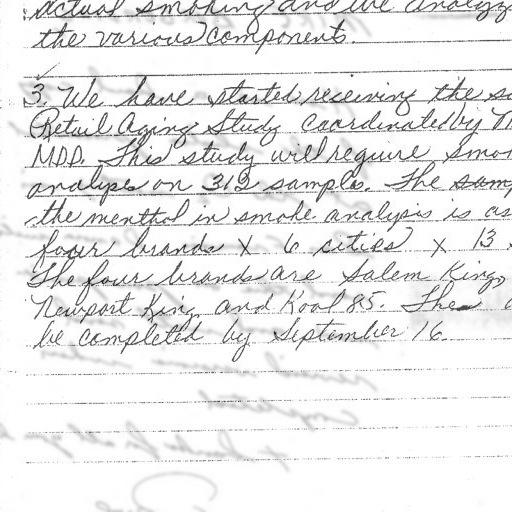 actual smoking and we analyz
the various components.
3. We have started receiving the sa
Retail Aging Study coordinated by
MDD. This study will require smok
analyses on 312 samples. The samp
the menthol in smoke analysis is as
four brands x 6 cities x 13
The four brands are Salem King,
Newport King and Kool 85. The
be completed by September 16.